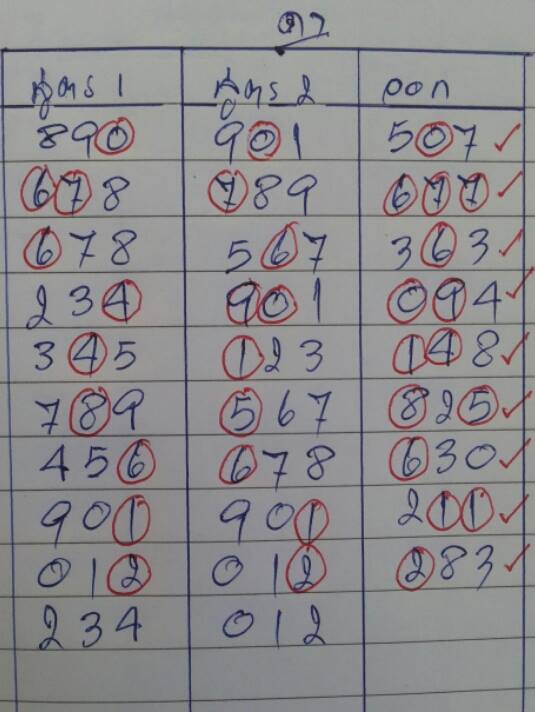 สูตร 1 สูตร 2 ออก
890 901 507 ✓
678 789 677 ✓
678 567 363 ✓
234 901 094 ✓
345 123 148 ✓
789 567 825 ✓
456 678 630 ✓
901 901 211 ✓
012 012 283 ✓
234 012